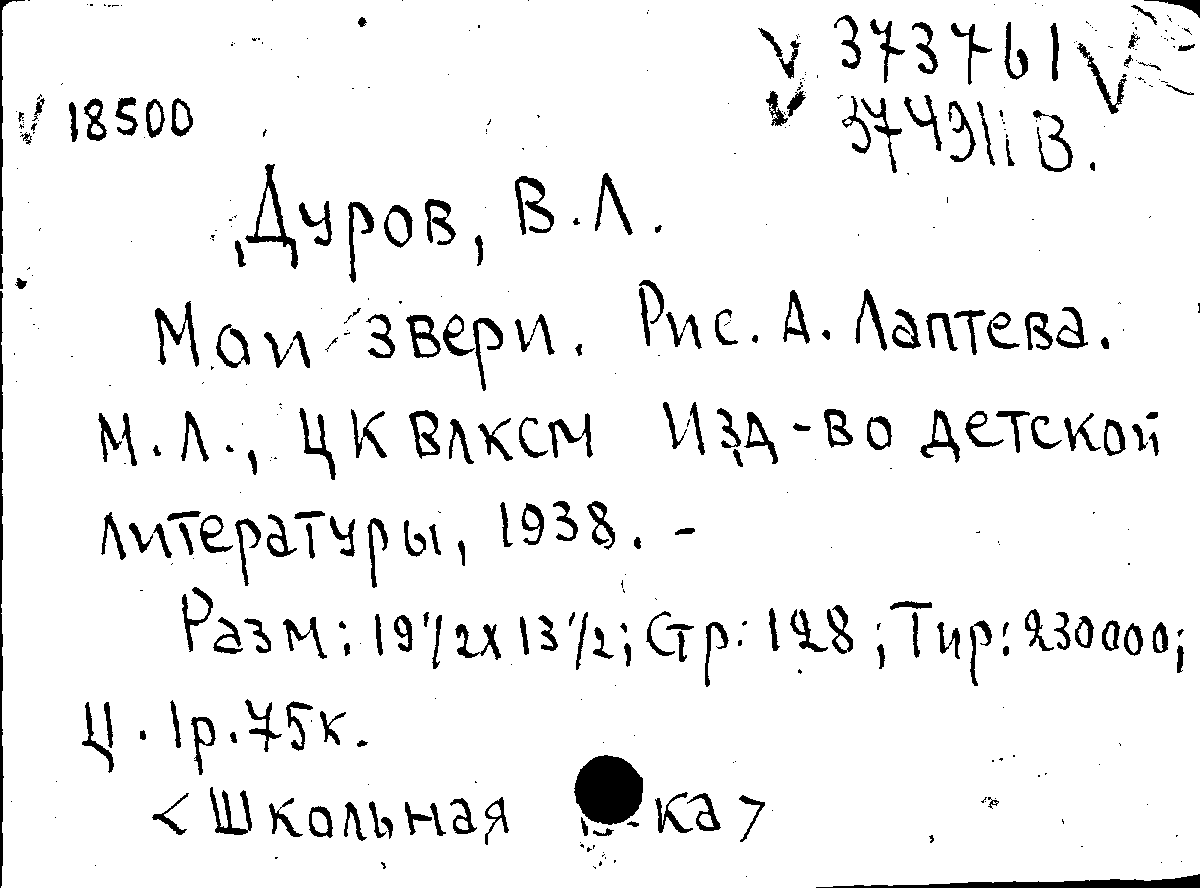 373761
18500
374911 В.
Дуров, В. Л.
Мои звери. Рис. А. Лаптева.
М. Л., ЦК ВЛКСМ Изд-во детской
литературы, 1938. -
Разм: 19 1/2 х 13 1/2; Стр: 128; Тир: 230000;
Ц. 1р. 75к.
<Школьная -ка>